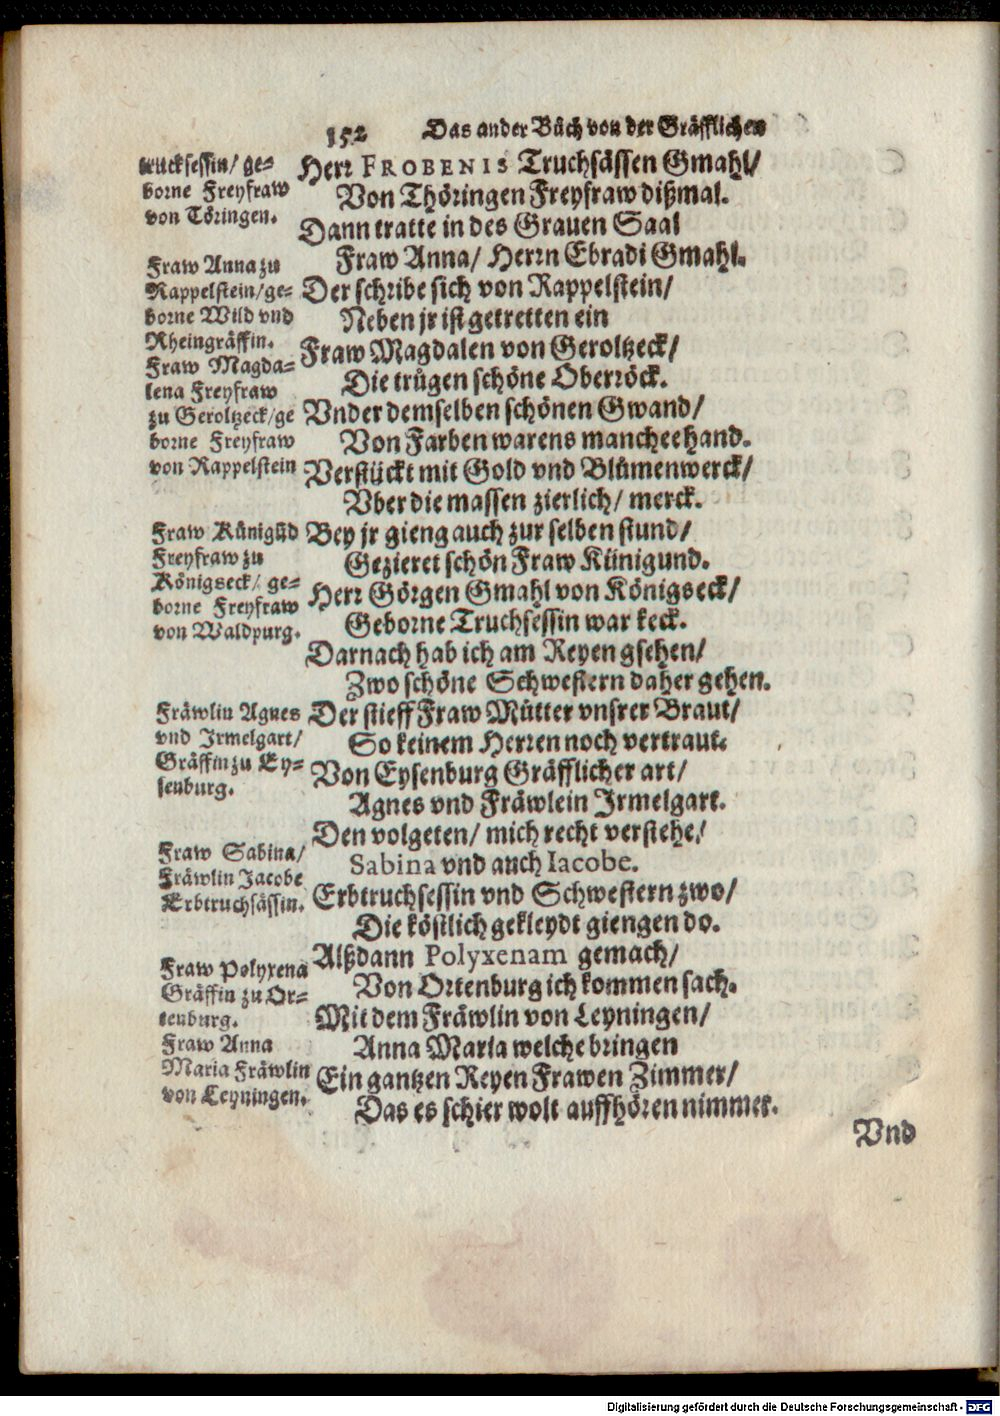 152 Das ander Bůch von der Gräfflichen
trucksessin/ ge=
borne Freyfraw
von Töringen.
Fraw Anna zu
Rappelstein/ge=
borne Wild vnd
Rheingräffin.
Fraw Magda=
lena Freyfraw
zu Geroltzeck/ge
borne Freyfraw
von Rappelstein
Fraw Künigūd
Freyfraw zu
Königseck/ ge=
borne Freyfraw
von Waldpurg.
Fräwlin Agnes
vnd Irmelgart/
Gräffin zu Ey=
senburg.
Fraw Sabina/
Fräwlin Jacobe
Erbtruchsässin.
Fraw Polyxena
Gräffin zu Or=
tenburg.
Fraw Anna
Maria Fräwlin
von Leyningen.
Herr FROBENIS Truchsässen Gmahl/
Von Thöringen Freyfraw dißmal.
Dann tratte in des Grauen Saal
Fraw Anna/ Herrn Ebradi Gmahl.
Der schribe sich von Rappelstein/
Neben jr ist getretten ein
Fraw Magdalen von Geroltzeck/
Die trůgen schöne Oberröck.
Vnder demselben schönen Gwand/
Von Farben warens mancheehand.
Verstückt mit Gold vnd Blůmenwerck/
Vber die massen zierlich/ merck.
Bey jr gieng auch zur selben stund/
Gezieret schön Fraw Künigund.
Herr Görgen Gmahl von Königseck/
Geborne Truchsessin war keck.
Darnach hab ich am Reyen gsehen/
Zwo schöne Schwestern daher gehen.
Der stieff Fraw Můtter vnsrer Braut/
So keinem Herren noch vertraut.
Von Eysenburg Gräfflicher art/
Agnes vnd Fräwlein Irmelgart.
Den volgeten/ mich recht verstehe/
Sabina vnd auch Iacobe.
Erbtruchsessin vnd Schwestern zwo/
Die köstlich gekleydt giengen do.
Alßdann Polyxenam gemach/
Von Ortenburg ich kommen sach.
Mit dem Fräwlin von Leyningen/
Anna Maria welche bringen
Ein gantzen Reyen Frawen Zimmer/
Das es schier wolt auffhören nimmer.
Vnd
Digitalisierung gefördert durch die Deutsche Forschungsgemeinschaft - DFG